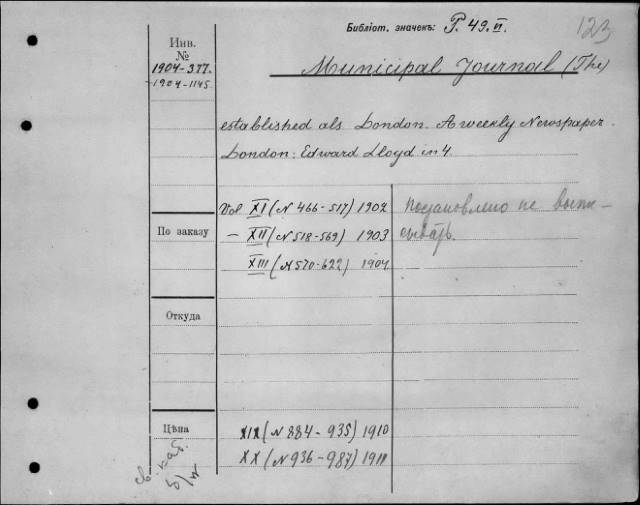 Библіот. значекъ: P. 49. VI.
123
Инв.
№
1904-377.
-1904-1145.
Municipal Journal (The)
established als London. A weekly Newspaper.
London: Edward Lloyd in 4.
Vol. XI (N 466-517) 1902
По заказу
— XII (N 518-569) 1903
XIII (N 570-622) 1904
Постановлено не выпи-
сывать.
Откуда
Цѣна
XIX (N 884-935) 1910
XX (N 936-987) 1911